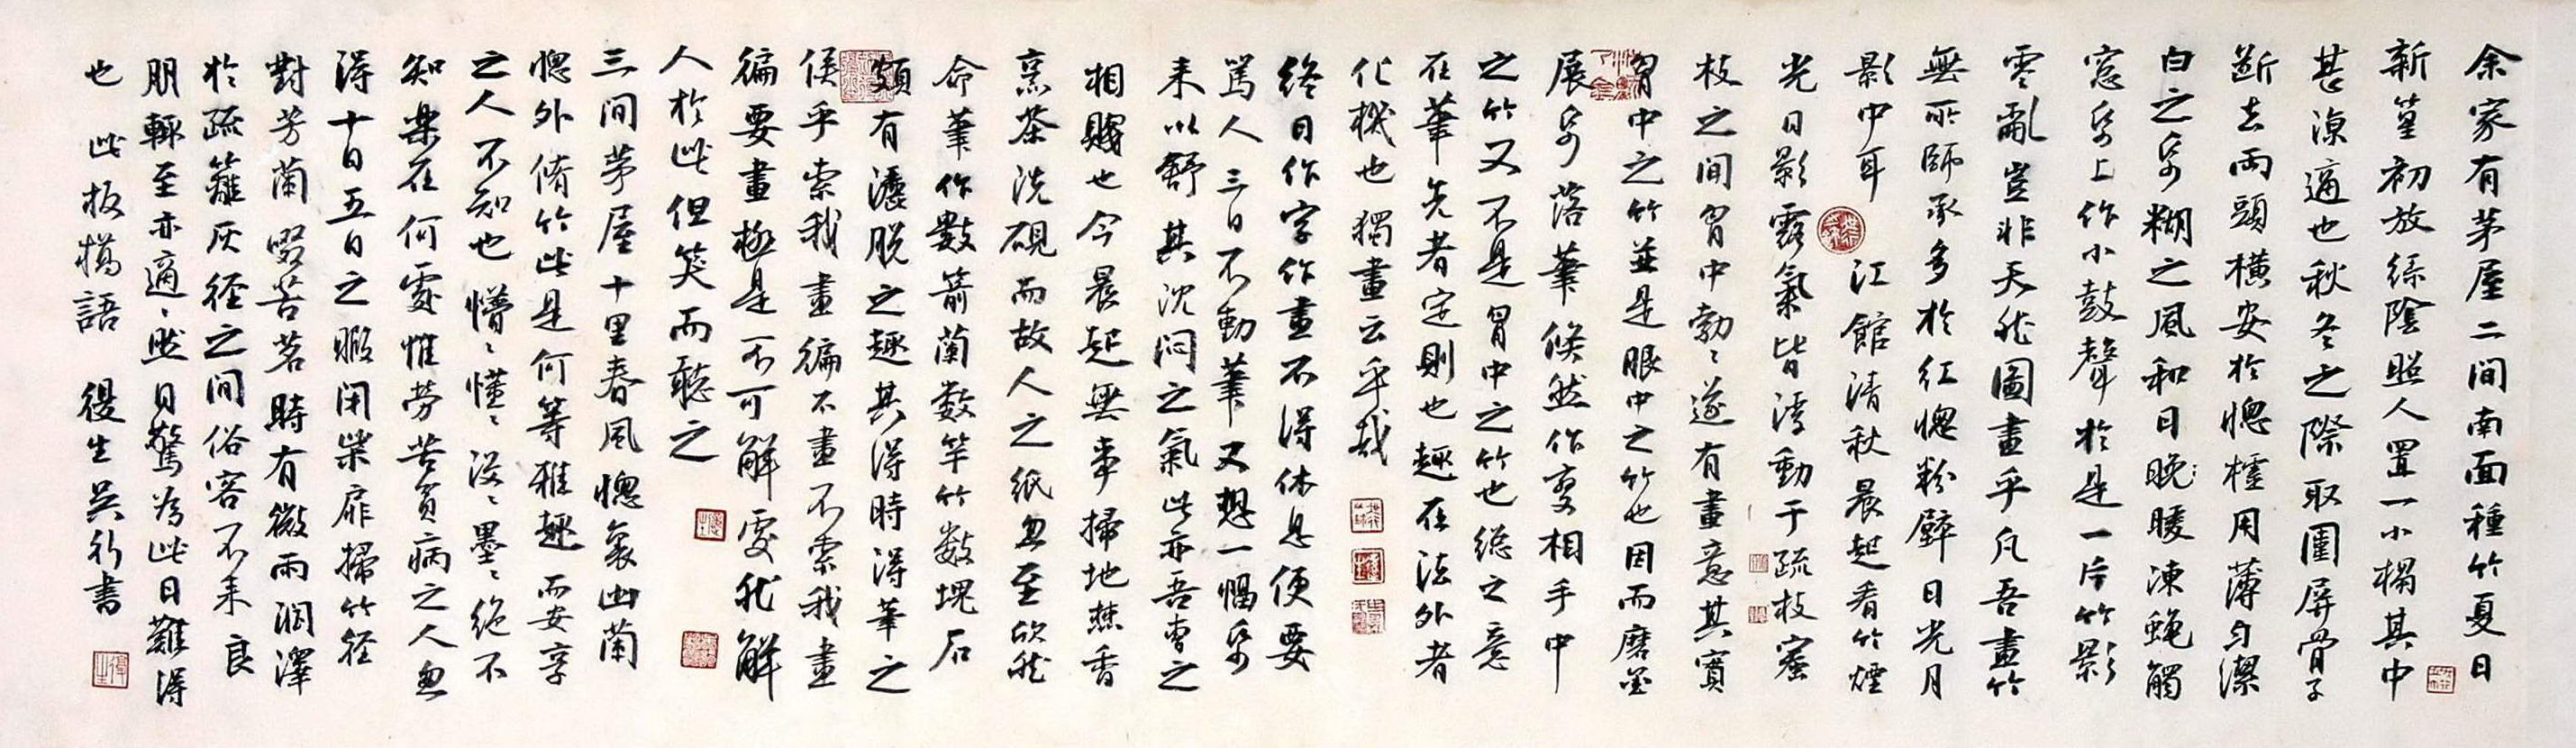 余家有茅屋二间南面種竹夏日
新篁初放綠陰照人置一小榻其中
甚涼適也秋冬之際取圍屏骨子
斷去兩頭橫安於牕櫺用薄匀潔
白之紙糊之風和日暖凍蠅觸
窓紙上作小鼓聲於是一片竹影
零亂豈非天然圖畫乎凡吾畫竹
無所師承多於紅牕粉壁日光月
影中耳 江館清秋晨起看竹煙
光日影露氣皆浮動于疏枝密
枝之間胷中勃〻遂有畫意其實
胷中之竹並不是眼中之竹也因而磨墨
展紙落筆倏然作變相手中
之竹又不是胷中之竹也總之意
在筆先者定則也趣在法外者
化機也獨畫云乎哉
終日作字作畫不得休息便要
罵人三日不動筆又想一幅紙
来以舒其沈悶之氣此亦吾曹之
相賤也今晨起無事掃地焚香
烹茶洗硯而故人之紙忽至欣然
命筆作數箭蘭数竿竹数塊石
頗有灑脱之趣其得時得筆之
候乎索我畫徧不畫不索我畫
徧要畫極是不可解處然解
人於此但笑而聽之
三间茅屋十里春風牕裏幽蘭
牕外脩竹此是何等雅趣而安享
之人不知也懵〻懂〻没〻墨〻絶不
知樂在何處惟勞苦貧病之人忽
得十日五日之暇闭柴扉掃竹径
對芳蘭啜苦茗時有微雨润澤
於疏籬仄径之间俗客不来良
朋輒至亦適〻然自驚為此日難得
也 此板橋語 復生吴行書